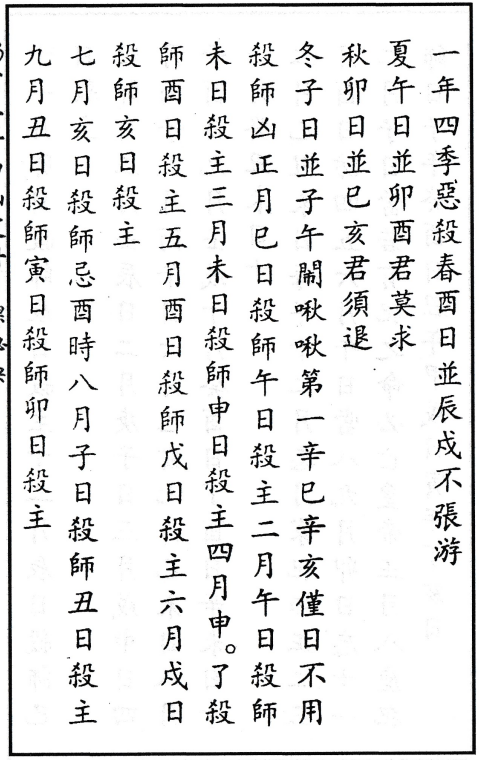 一年四季惡殺春酉日並辰戍不張游
夏午日並卯酉君莫求
秋卯日並巳亥君須退
冬子日並子午鬧啾啾第一辛巳辛亥僅日不用
殺師凶正月巳日殺師午日殺主二月午日殺師
未日殺主三月未日殺師申日殺主四月申。了殺
師酉日殺主五月酉日殺師戊日殺主六月戍日
殺師亥日殺主
七月亥日殺師忌酉時八月子日殺師丑日殺主
九月丑日殺師寅日殺師卯日殺主